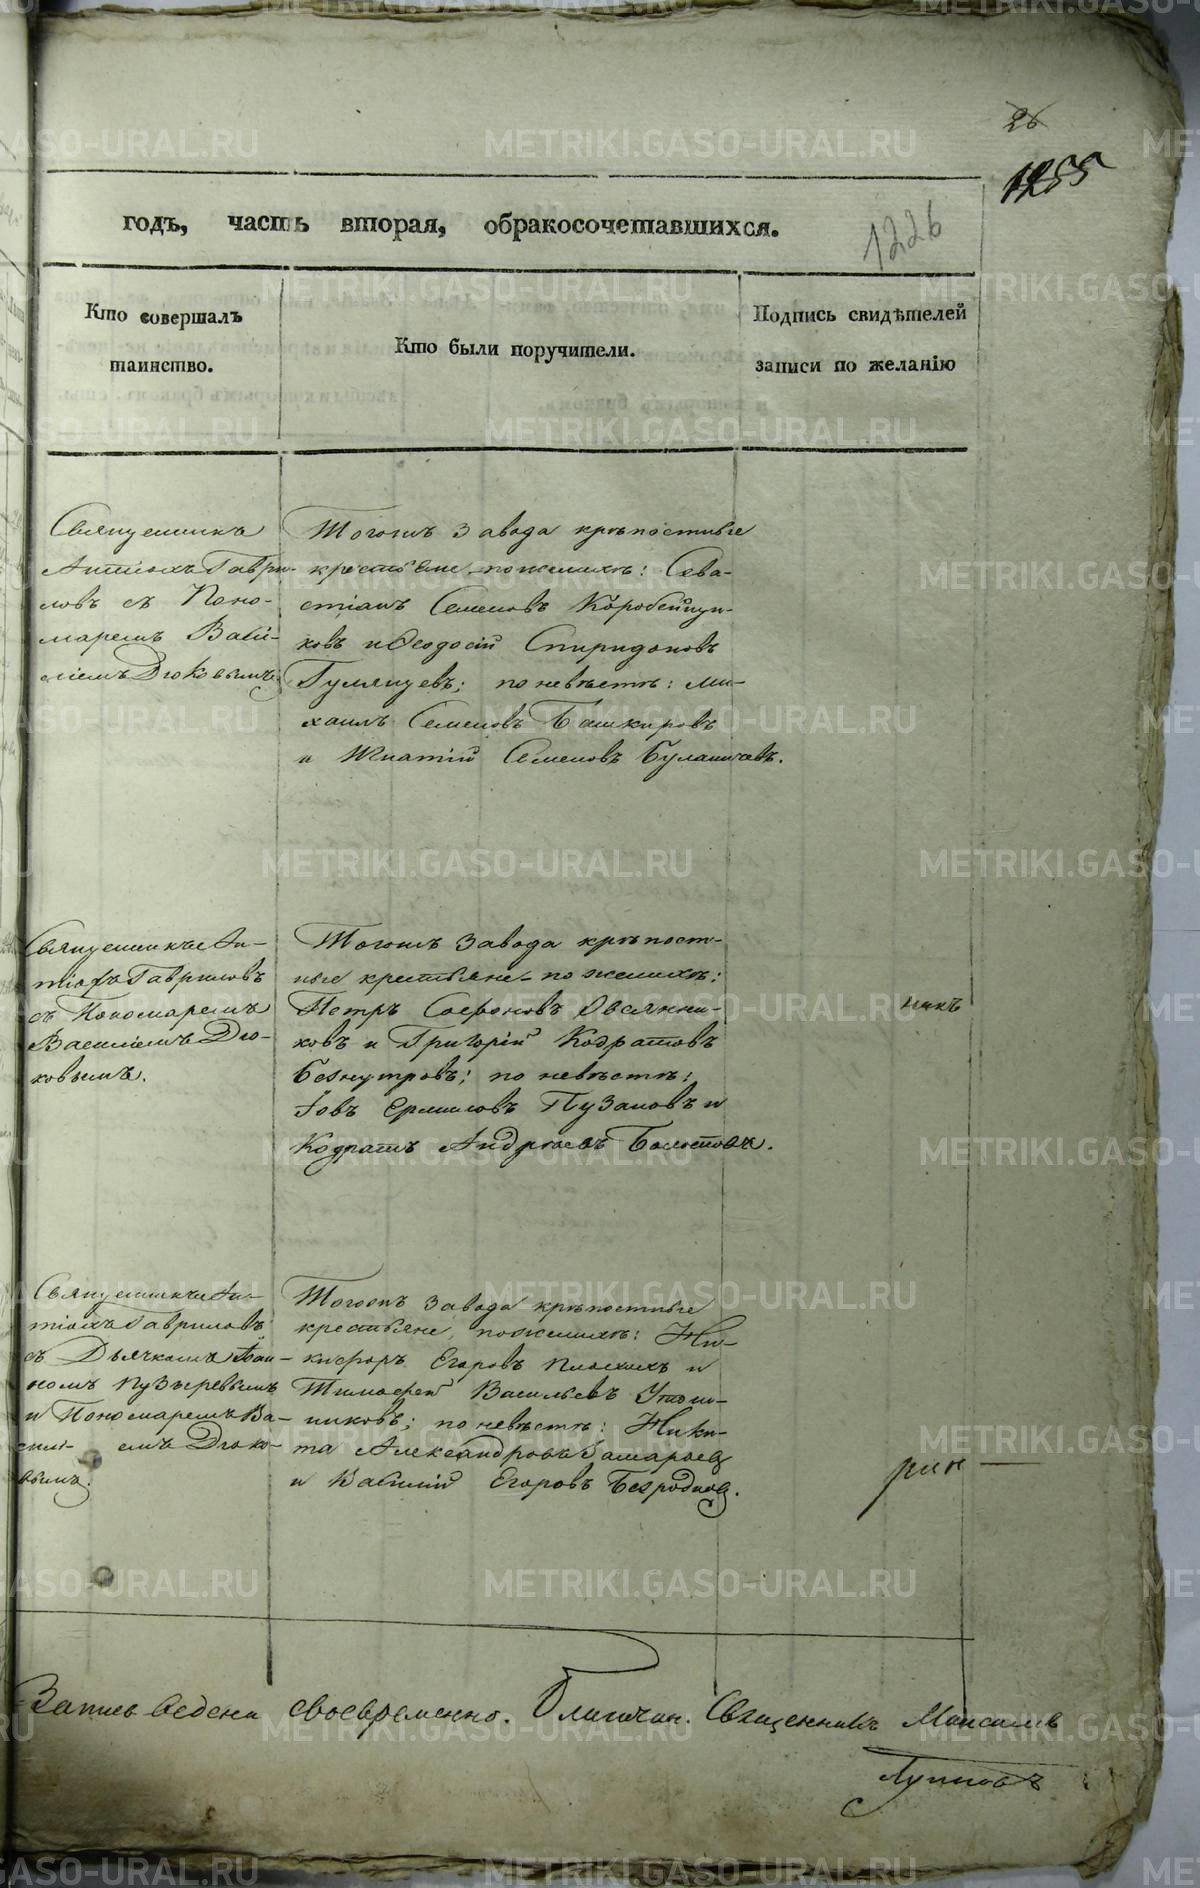 26
1255
годъ, часть вторая, обракосочетавшихся.
1226
Кто совершалъ
таинство.
Кто были поручители.
Подпись свидѣтелей
записи по желанію
Священникъ
Антіохъ Гаври-
ловъ съ Поно-
маремъ Васи-
ліемъ Дюковымъ
Тогожъ завода крѣпостные
крестьяне по женихѣ: Сева-
стіанъ Семеновъ Коробейщи-
ковъ и Ѳеодосій Спиридоновъ
Гумянцевъ; по невѣстѣ: Ми-
хаилъ Семеновъ Башкировъ
и Игнатій Семеновъ Буланичевъ.
Священникъ Ан-
тіохъ Гавриловъ
съ Пономаремъ
Василіемъ Дю-
ковымъ.
Тогожъ завода крѣпост-
ные крестьяне по женихѣ:
Петръ Софоновъ Овсянни-
ковъ и Григорій Кодратовъ
по невѣстѣ:
Іовъ Ермиловъ Пузановъ и
Кодратъ Андреевъ
никъ
Священникъ Ан-
тіохъ Гавриловъ
съ Дьячкомъ Іоан-
номъ Пузыревымъ
и Пономаремъ Ва-
силі- емъ Дюко-
вымъ.
Тогожъ завода крѣпостные
крестьяне, по женихѣ: Ни-
кифоръ Егоровъ Плоскихъ и
Тимофей Васильевъ
по невѣстѣ: Ники-
та Александровъ
и Василій Егоровъ Безродновъ.
рин
Запись ведена своевременно. Благочин. Священникъ
METRIKI.GASO-URAL.RU